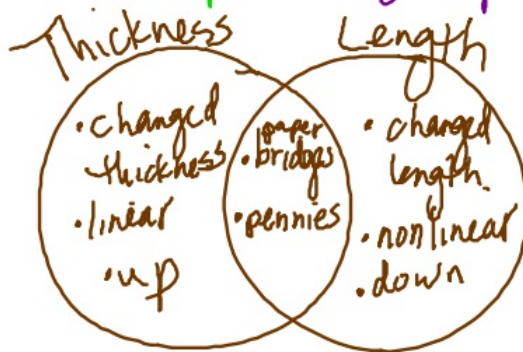 Thickness
Length
• changed
thickness
• linear
• up
paper
• bridges
• pennies
• changed
length
• nonlinear
• down